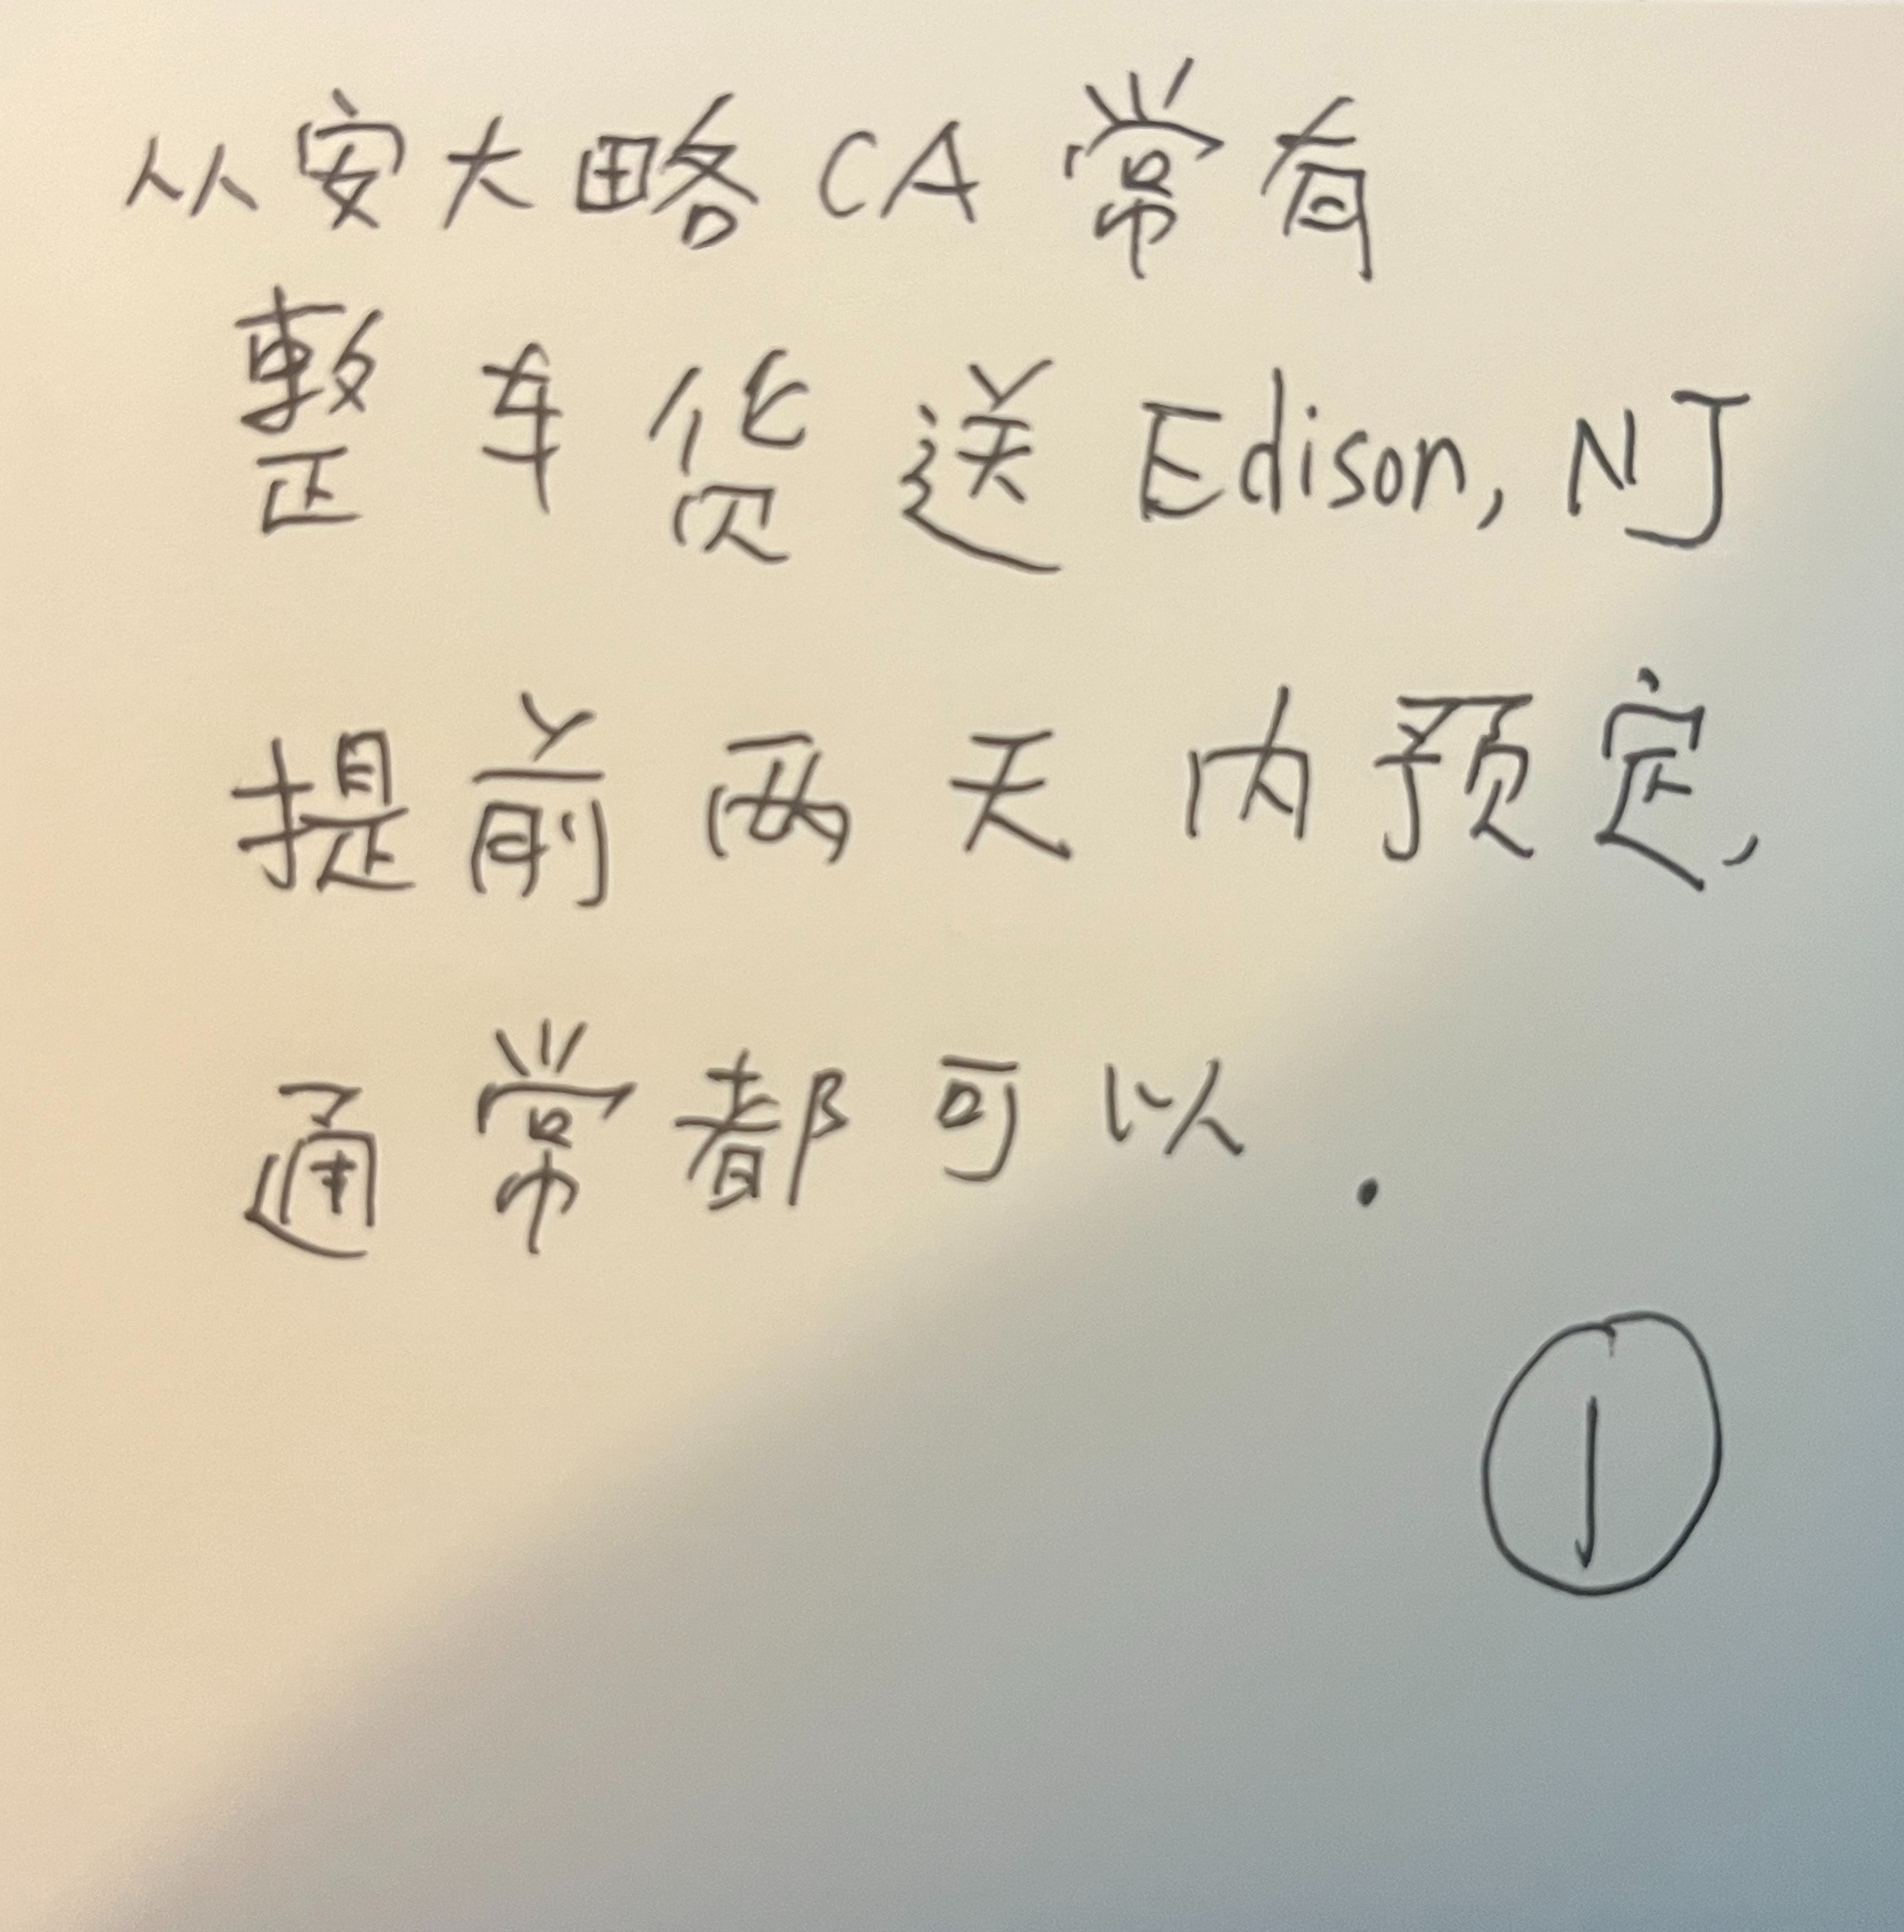 从安大略CA常有
整车货送Edison, NJ
提前两天内预定,
通常都可以.
①